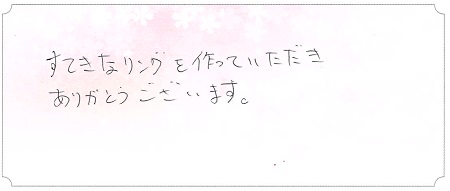 すてきなリングを作っていただき
ありがとうございます。